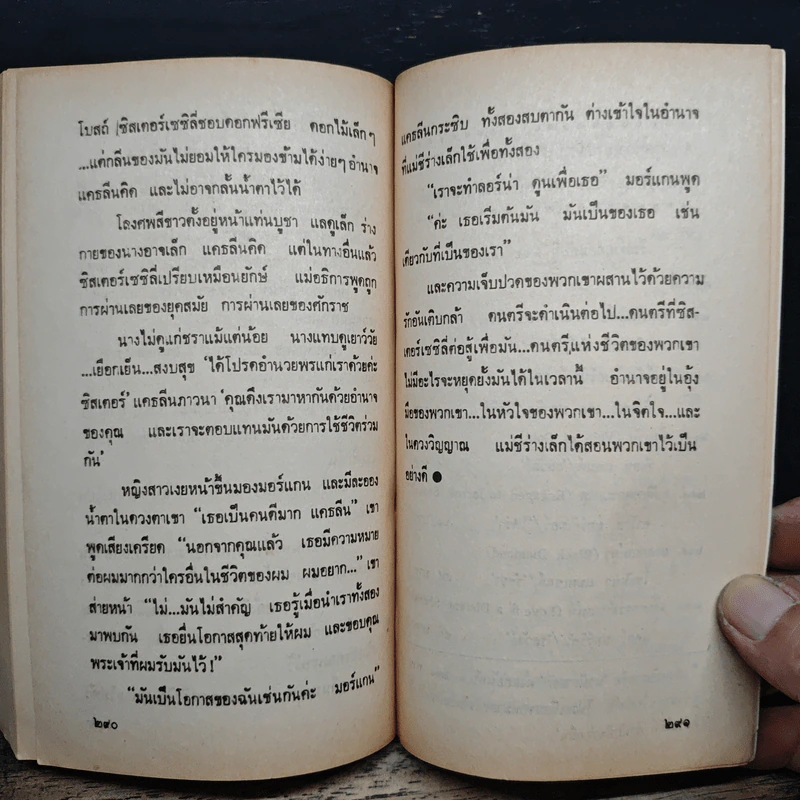 โบสถ์ ซิสเตอร์เซซิลี่ชอบดอกฟรีเซีย ดอกไม้เล็กๆ
...แต่กลิ่นของมันไม่ยอมให้ใครมองข้ามได้ง่ายๆ อำนาจ
แคธลีนคิด และไม่อาจกลั้นน้ำตาไว้ได้
โลงศพสีขาวตั้งอยู่หน้าแท่นบูชา แลดูเล็ก ร่าง
กายของนางอาจเล็ก แคธลีนคิด แต่ในทางอื่นแล้ว
ซิสเตอร์เซซิลี่เปรียบเหมือนยักษ์ แม่อธิการพูดถูก
การผ่านเลยของยุคสมัย การผ่านเลยของศักราช
นางไม่ดูแก่ชราแม้แต่น้อย นางแทบดูเยาว์วัย
...เยือกเย็น...สงบสุข ‘ได้โปรดอำนวยพรแก่เราด้วยค่ะ
ซิสเตอร์’ แคธลีนภาวนา ‘คุณดึงเรามาหากันด้วยอำนาจ
ของคุณ และเราจะตอบแทนมันด้วยการใช้ชีวิตร่วม
กัน’
หญิงสาวเงยหน้าขึ้นมองมอร์แกน และมีละออง
น้ำตาในดวงตาเขา “เธอเป็นคนดีมาก แคธลีน” เขา
พูดเสียงเครียด “นอกจากคุณแล้ว เธอมีความหมาย
ต่อผมมากกว่าใครอื่นในชีวิตของผม ผมอยาก...” เขา
ส่ายหน้า “ไม่...มันไม่สำคัญ เธอรู้เมื่อนำเราทั้งสอง
มาพบกัน เธอยื่นโอกาสสุดท้ายให้ผม และขอบคุณ
พระเจ้าที่ผมรับมันไว้!”
“มันเป็นโอกาสของฉันเช่นกันค่ะ มอร์แกน”
๒๙๐
แคธลีนกระซิบ ทั้งสองสบตากัน ต่างเข้าใจในอำนาจ
ที่แม่ชีร่างเล็กใช้เพื่อทั้งสอง
“เราจะทำลอร์น่า ดูนเพื่อเธอ” มอร์แกนพูด
“ค่ะ เธอเริ่มต้นมัน มันเป็นของเธอ เช่น
เดียวกับที่เป็นของเรา”
และความเจ็บปวดของพวกเขาผสานไว้ด้วยความ
รักอันเติบกล้า ดนตรีจะดำเนินต่อไป...ดนตรีที่ซิส-
เตอร์เซซิลี่ต่อสู้เพื่อมัน...ดนตรีแห่งชีวิตของพวกเขา
ไม่มีอะไรจะหยุดยั้งมันได้ในเวลานี้ อำนาจอยู่ในอุ้ง
มือของพวกเขา...ในหัวใจของพวกเขา...ในจิตใจ...และ
ในดวงวิญญาณ แม่ชีร่างเล็กได้สอนพวกเขาไว้เป็น
อย่างดี ●
๒๙๑